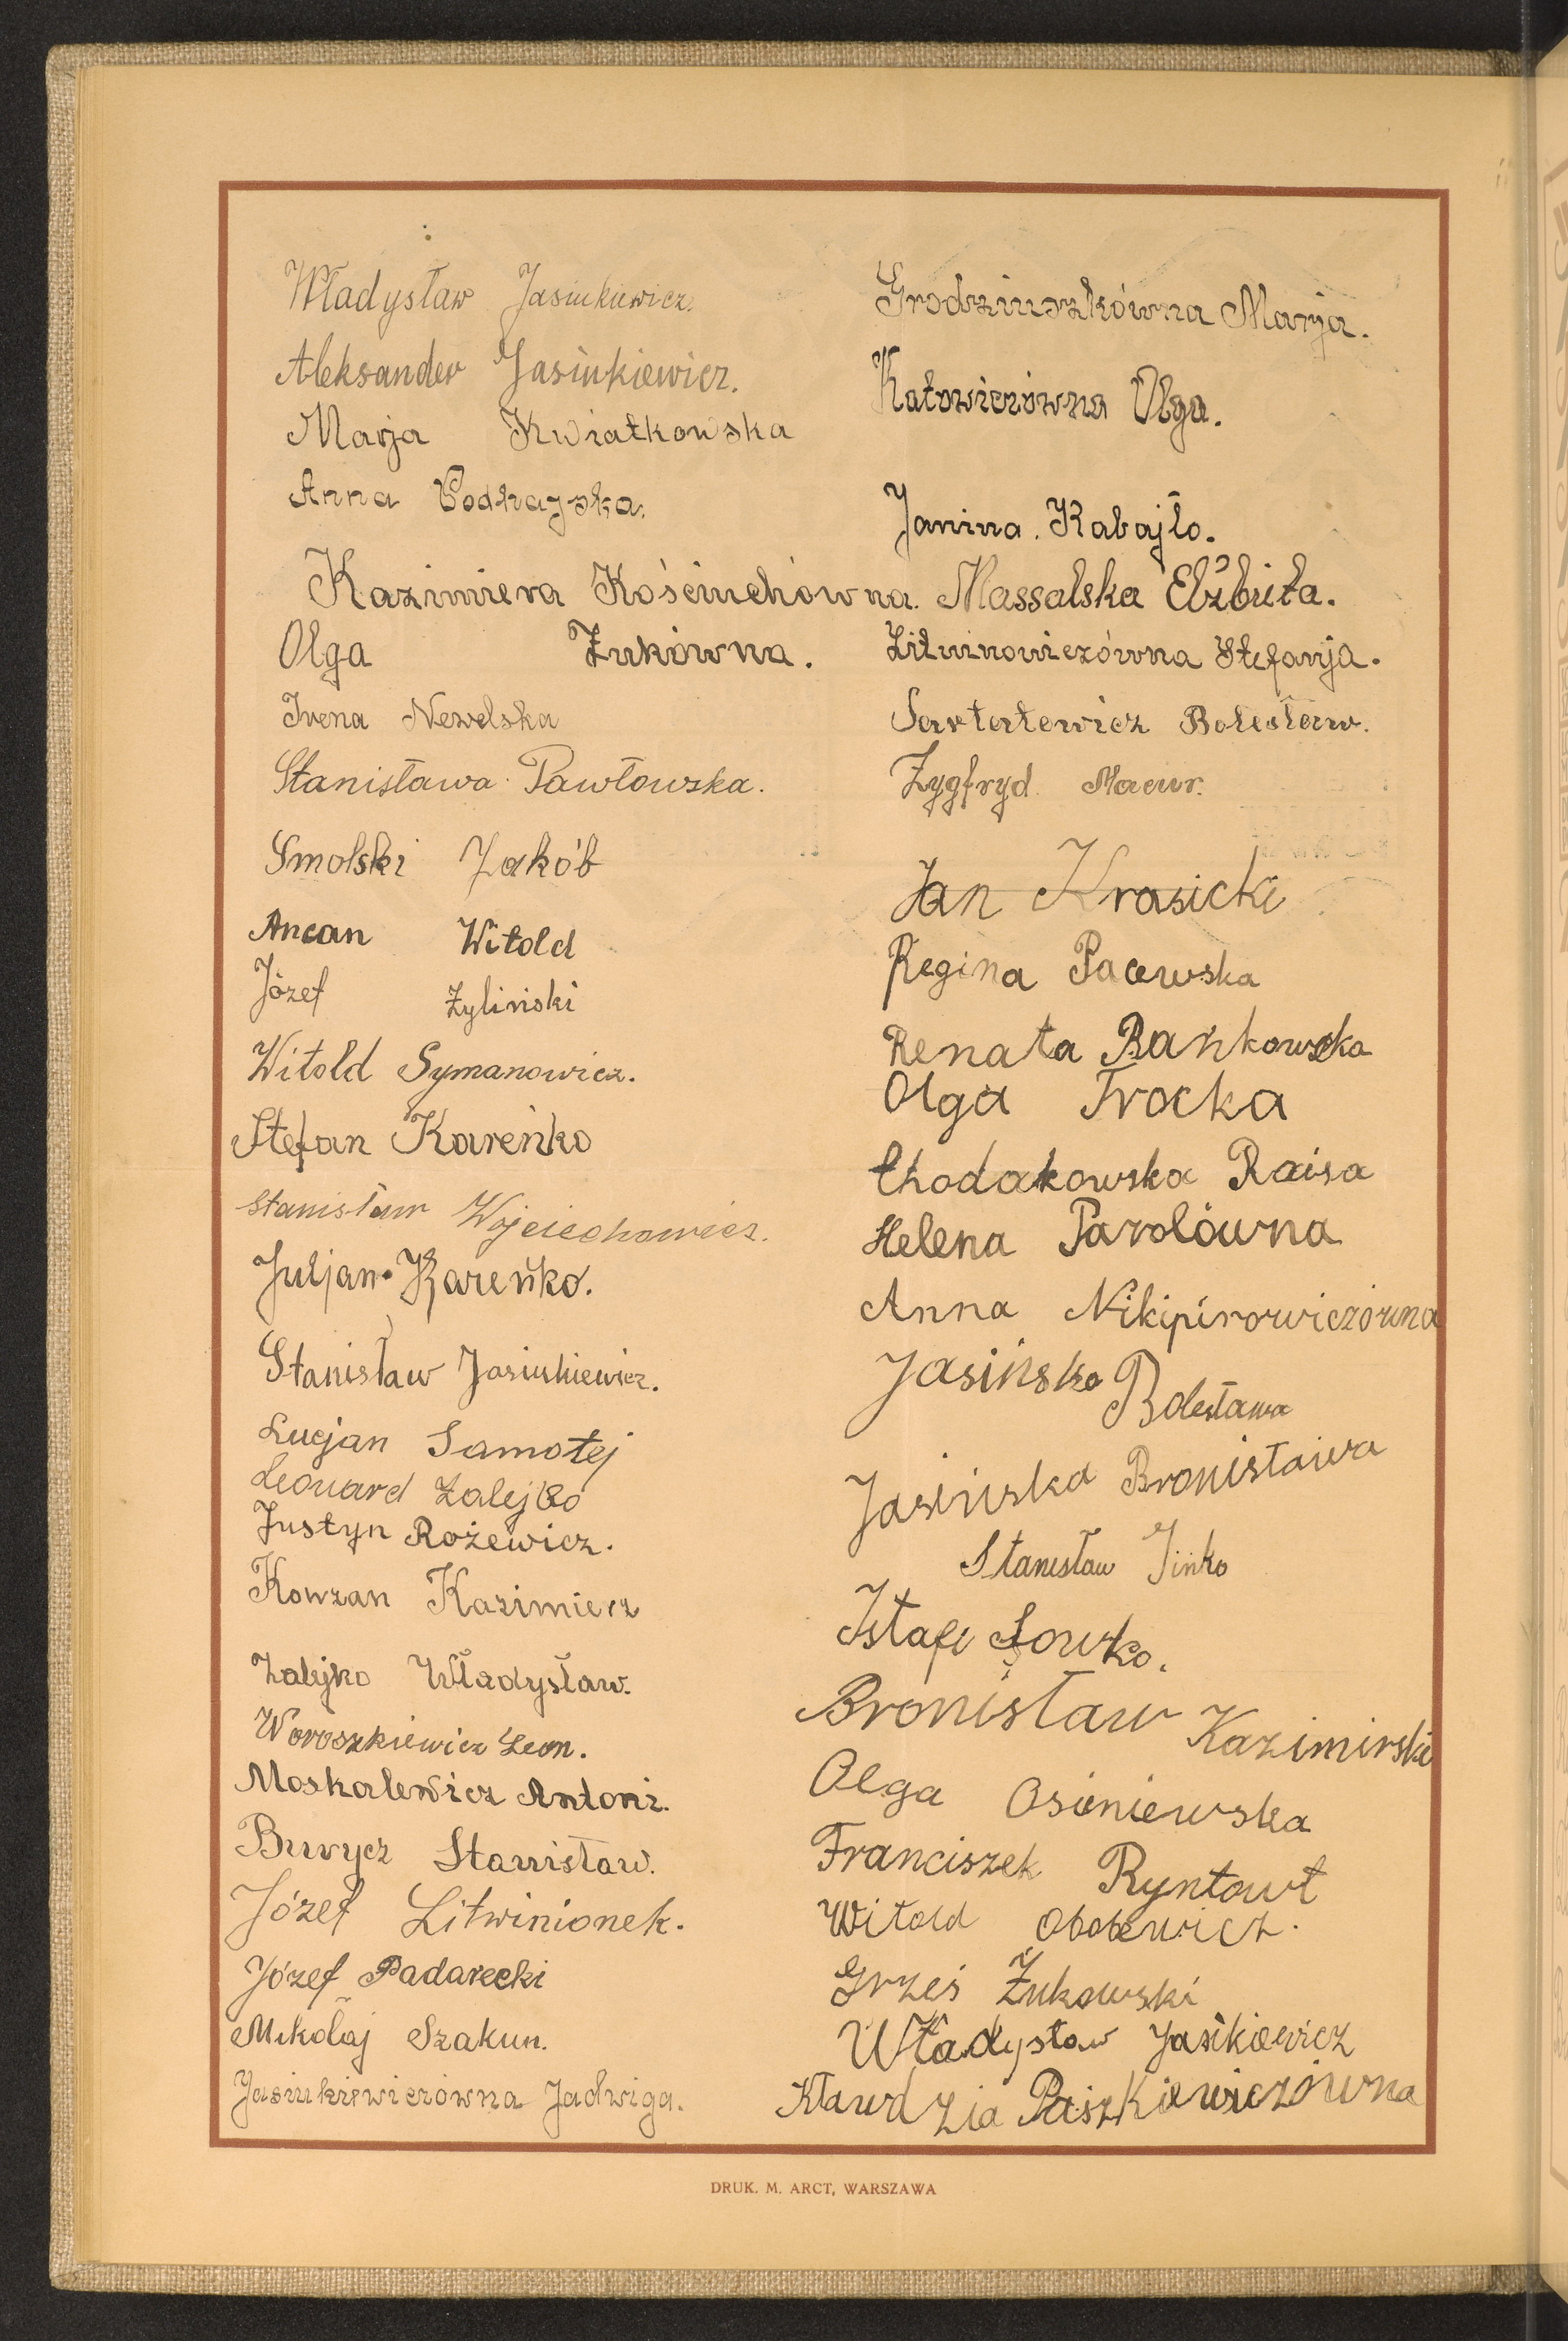 Władysław Jasiukiewicz.
Aleksander Jasiukiewicz.
Marja Kwiatkowska
Anna Podhajska.
Kazimiera Kościuchówna.
Olga Żukówna.
Irena Newelska
Stanisława Pawłowska.
Smolski Jakób
Ancan Witold
Józef Żyliński
Witold Symanowicz.
Stefan Kareńko
Stanisław Wojciechowicz.
Juljan Kareńko.
Stanisław Jasiukiewicz.
Lucjan Samotej
Leonard Zalejko
Justyn Rożewicz.
Kowzan Kazimierz
Zalejko Władysław.
Woroszkiewicz Leon.
Moskalewicz Antoni.
Burycz Stanisław.
Józef Litwinionek.
Józef Padarecki
Mikołaj Szakun.
Jasiukiewiczówna Jadwiga.
Grodziuszkówna Marja.
Katowiczówna Olga.
Janina Kabajło.
Massalska Elżbieta.
Litwinowiczówna Stefanja.
Sartatowicz Bolesław.
Zygfryd
Jan Krasicki
Regina Pacewska
Renata Bańkowska
Olga Trocka
Chodakowska Raisa
Helena Parolówna
Anna Nikipirowiczówna
Jasińska Bolesława
Jasińska Bronisława
Stanisław Jińko
Sowko.
Bronisław Kazimirski
Olga Osieniewska
Franciszek Ryntowt
Witold Obolewicz.
Grześ Żukowski
Władysław Jasikiewicz
Kławdzia Paszkiewiczówna
DRUK. M. ARCT, WARSZAWA